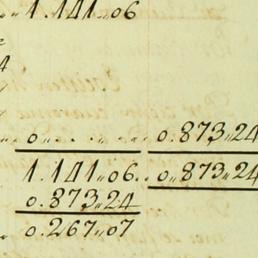 1.141„06
4
„0„ . . . „ . . . 0„873„24
1.141„06. . 0„873„24
0.873„24
0.267„07